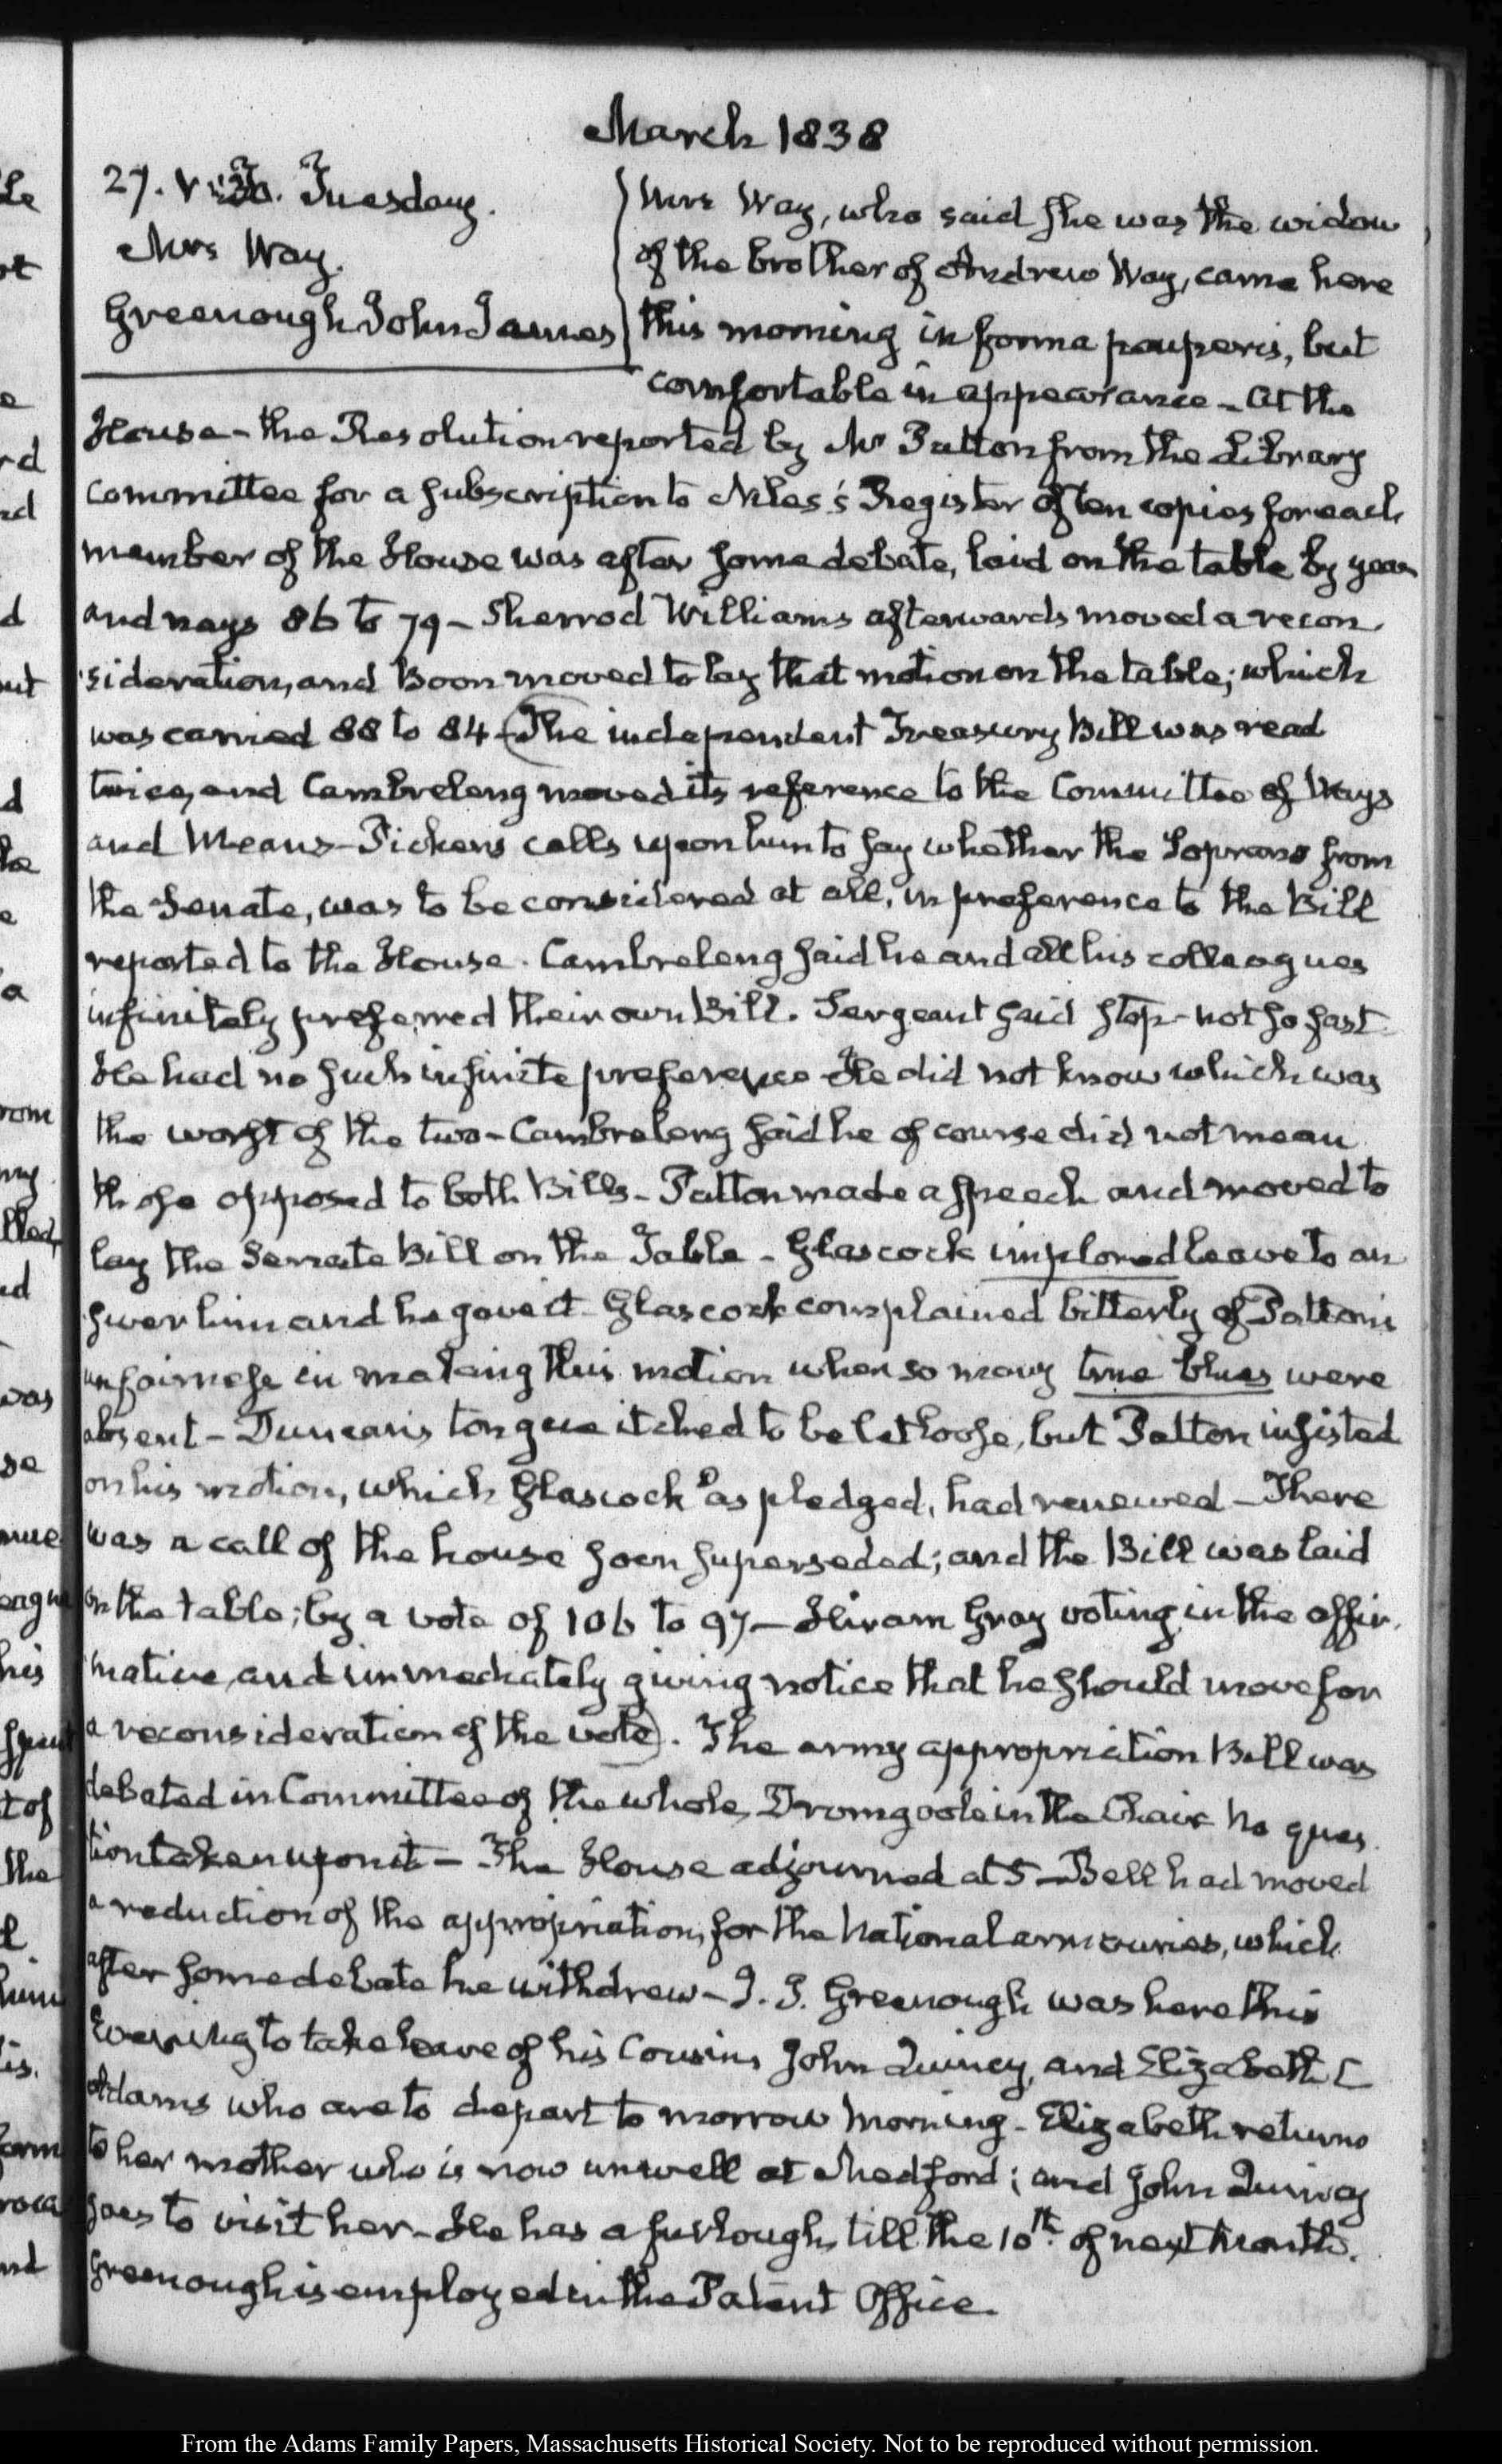 March 1838
27. V. Tuesday.
Mrs Way.
Greenough John James
Mrs Way, who said she was the widow
of the brother of Andrew Way, came here
this morning in forma pauperis, but
comfortable in appearance – At the
House – the Resolution reported by Mr Patton from the Library
Committee for a subscription to Niles's Register of ten copies for each
member of the House was after some debate, laid on the table by yeas
and nays 86 to 79 – Sherrod Williams afterwards moved a recon
sideration, and Boon moved to lay that motion on the table; which
was carried 88 to 84 – (The independent Treasury Bill was read
twice, and Cambreleng moved its reference to the Committee of Ways
and Means – Pickens calls upon him to say whether the from
the Senate, was to be considered at all, in preference to the Bill
reported to the House. Cambreleng said he and all his colleagues
infinitely preferred their own Bill. Sergeant said stop – not so fast
He had no such infinite preference He did not know which was
the worst of the two – Cambreleng said he of course did not mean
those opposed to both Bills – Patton made a speech and moved to
lay the Senate Bill on the Table – Glascock implored leave to an
swer him and he gave it – Glascock complained bitterly of Patton's
unfairness in making this motion when so many true blues were
absent – Duncan's tongue itched to be let loose, but Patton insisted
on his motion, which Glascock as pledged, had renewed – There
was a call of the house soon superseded; and the Bill was laid
on the table; by a vote of 106 to 97 – Hiram Gray voting in the affir
mative, and immediately giving notice that he should move for
a reconsideration of the vote). The army appropriation Bill was
debated in Committee of the whole, Dromgoole in the Chair No ques
tion taken upon it – The House adjourned at 5 – Bell had moved
a reduction of the appropriation, for the National armouries, which
after some debate he withdrew – J. J. Greenough was here this
Evening to take leave of his Cousins John Quincy, and Elizabeth C
Adams who are to depart to morrow Morning – Elizabeth returns
to her mother who is now unwell at Medford; and John Quincy
goes to visit her – He has a furlough, till the 10th. of next Month.
Greenough is employed in the Patent Office.
From the Adams Family Papers, Massachusetts Historical Society. Not to be reproduced without permission.